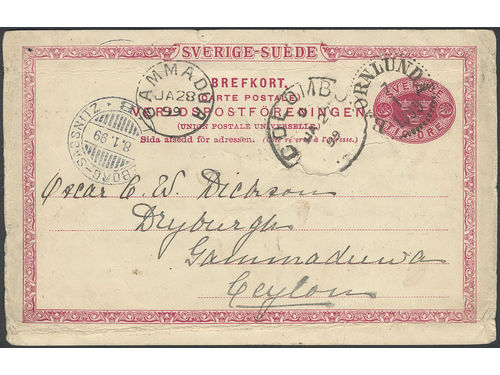 SVERIGE-SUÈDE
BREFKORT.
CARTE POSTALE
VERLDSPOSTFÖRENINGEN
(UNION POSTALE UNIVERSELLE.)
Sida afsedd för adressen. (Côté réservé à l'adresse.)
SVERIGE
TIO ÖRE
BJÖRNLUNDA
GAMMADUWA
JA 28
99
COLOMBO
JA
99
SASSNITZ
8.1.99
Oscar E. W. Dickson
Dryburgh
Gammaduwa
Ceylon